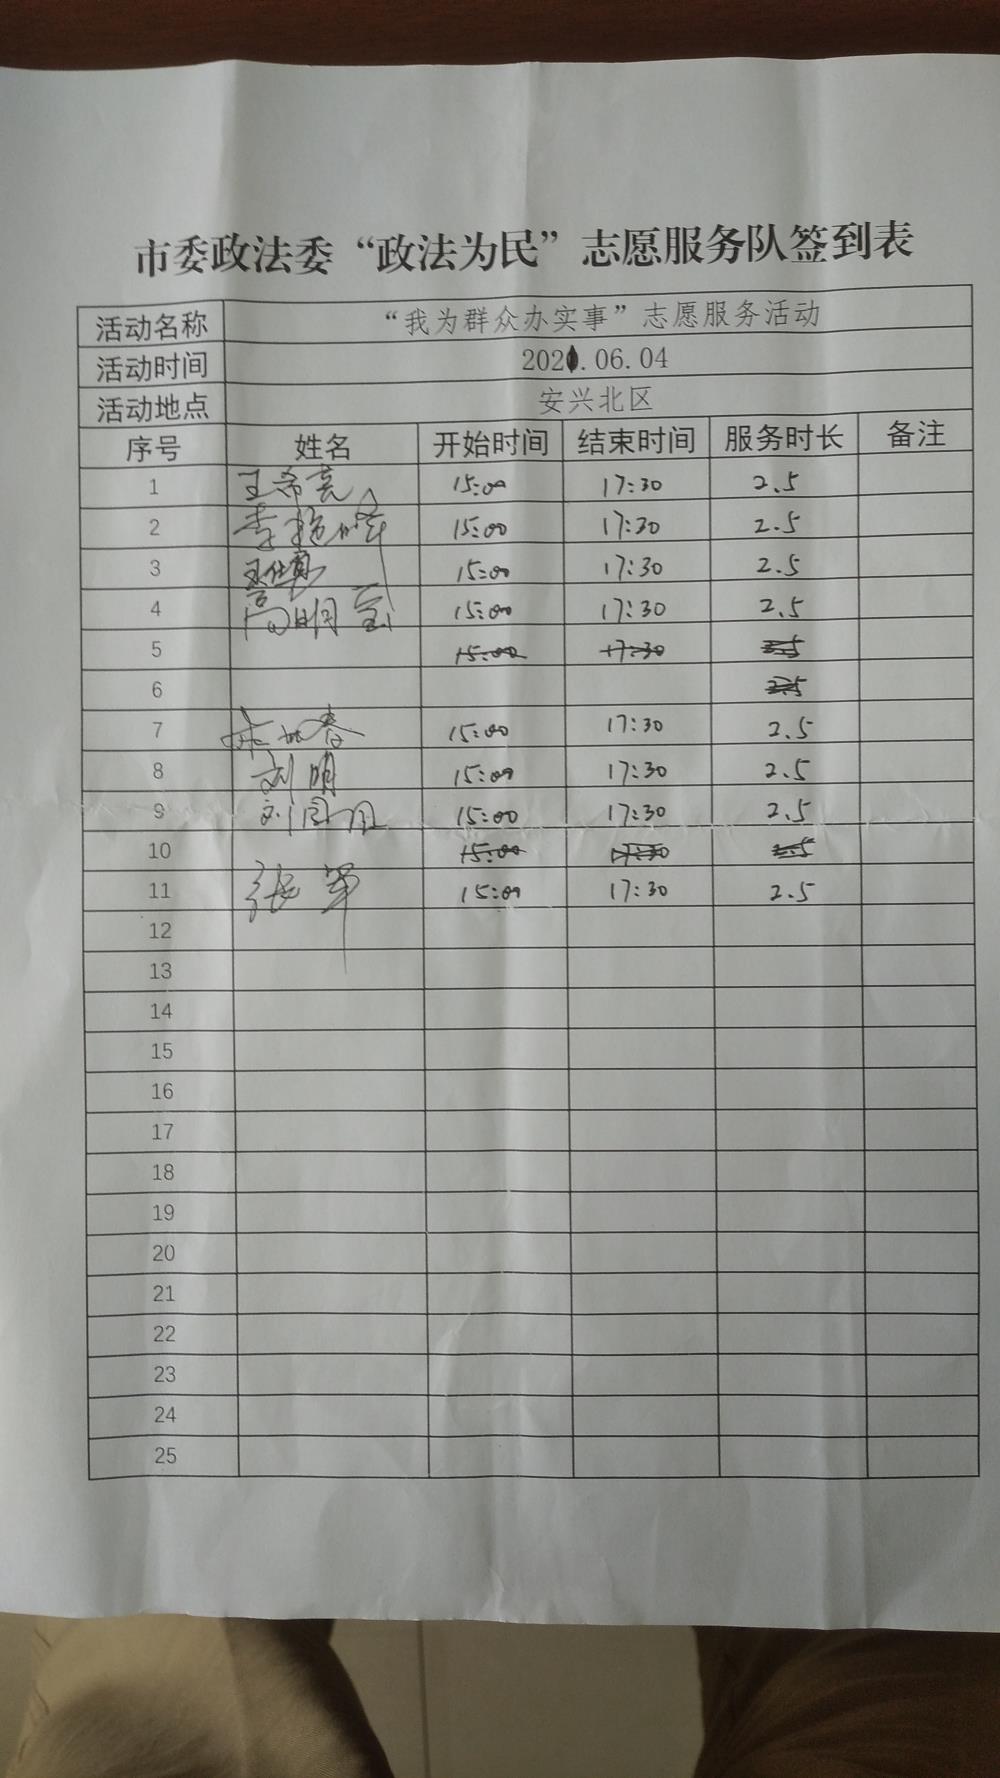 市委政法委“政法为民”志愿服务队签到表
活动名称 “我为群众办实事”志愿服务活动
活动时间 2021.06.04
活动地点 安兴北区
序号 姓名 开始时间 结束时间 服务时长 备注
1 王希亮 15:00 17:30 2.5
2 李艳峰 15:00 17:30 2.5
3 15:00 17:30 2.5
4 高明 15:00 17:30 2.5
5 15:00 17:30 2.5
6 2.5
7 春 15:00 17:30 2.5
8 刘明 15:00 17:30 2.5
9 刘 15:00 17:30 2.5
10 15:00 17:30 2.5
11 张军 15:00 17:30 2.5
12
13
14
15
16
17
18
19
20
21
22
23
24
25